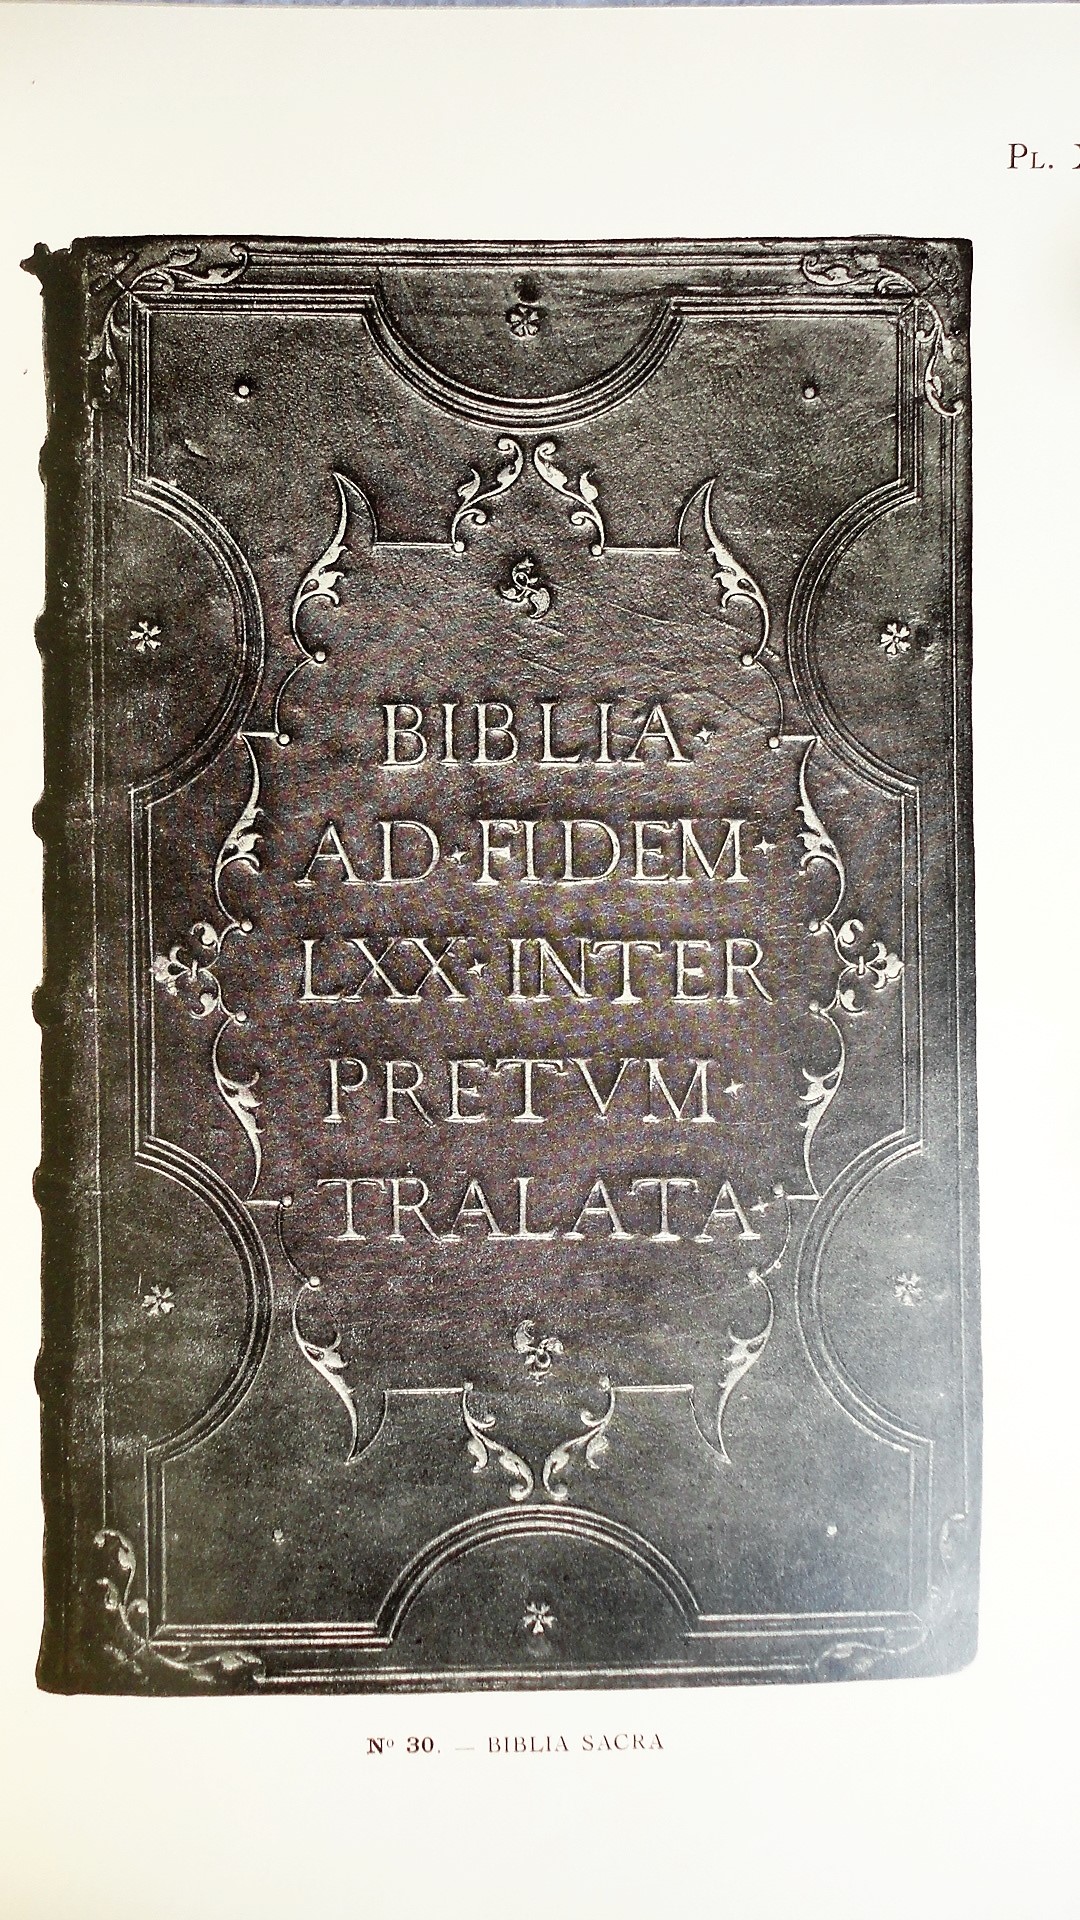 Pl.
BIBLIA·
AD·FIDEM·
LXX·INTER
PRETVM·
TRALATA·
Nº 30. — BIBLIA SACRA